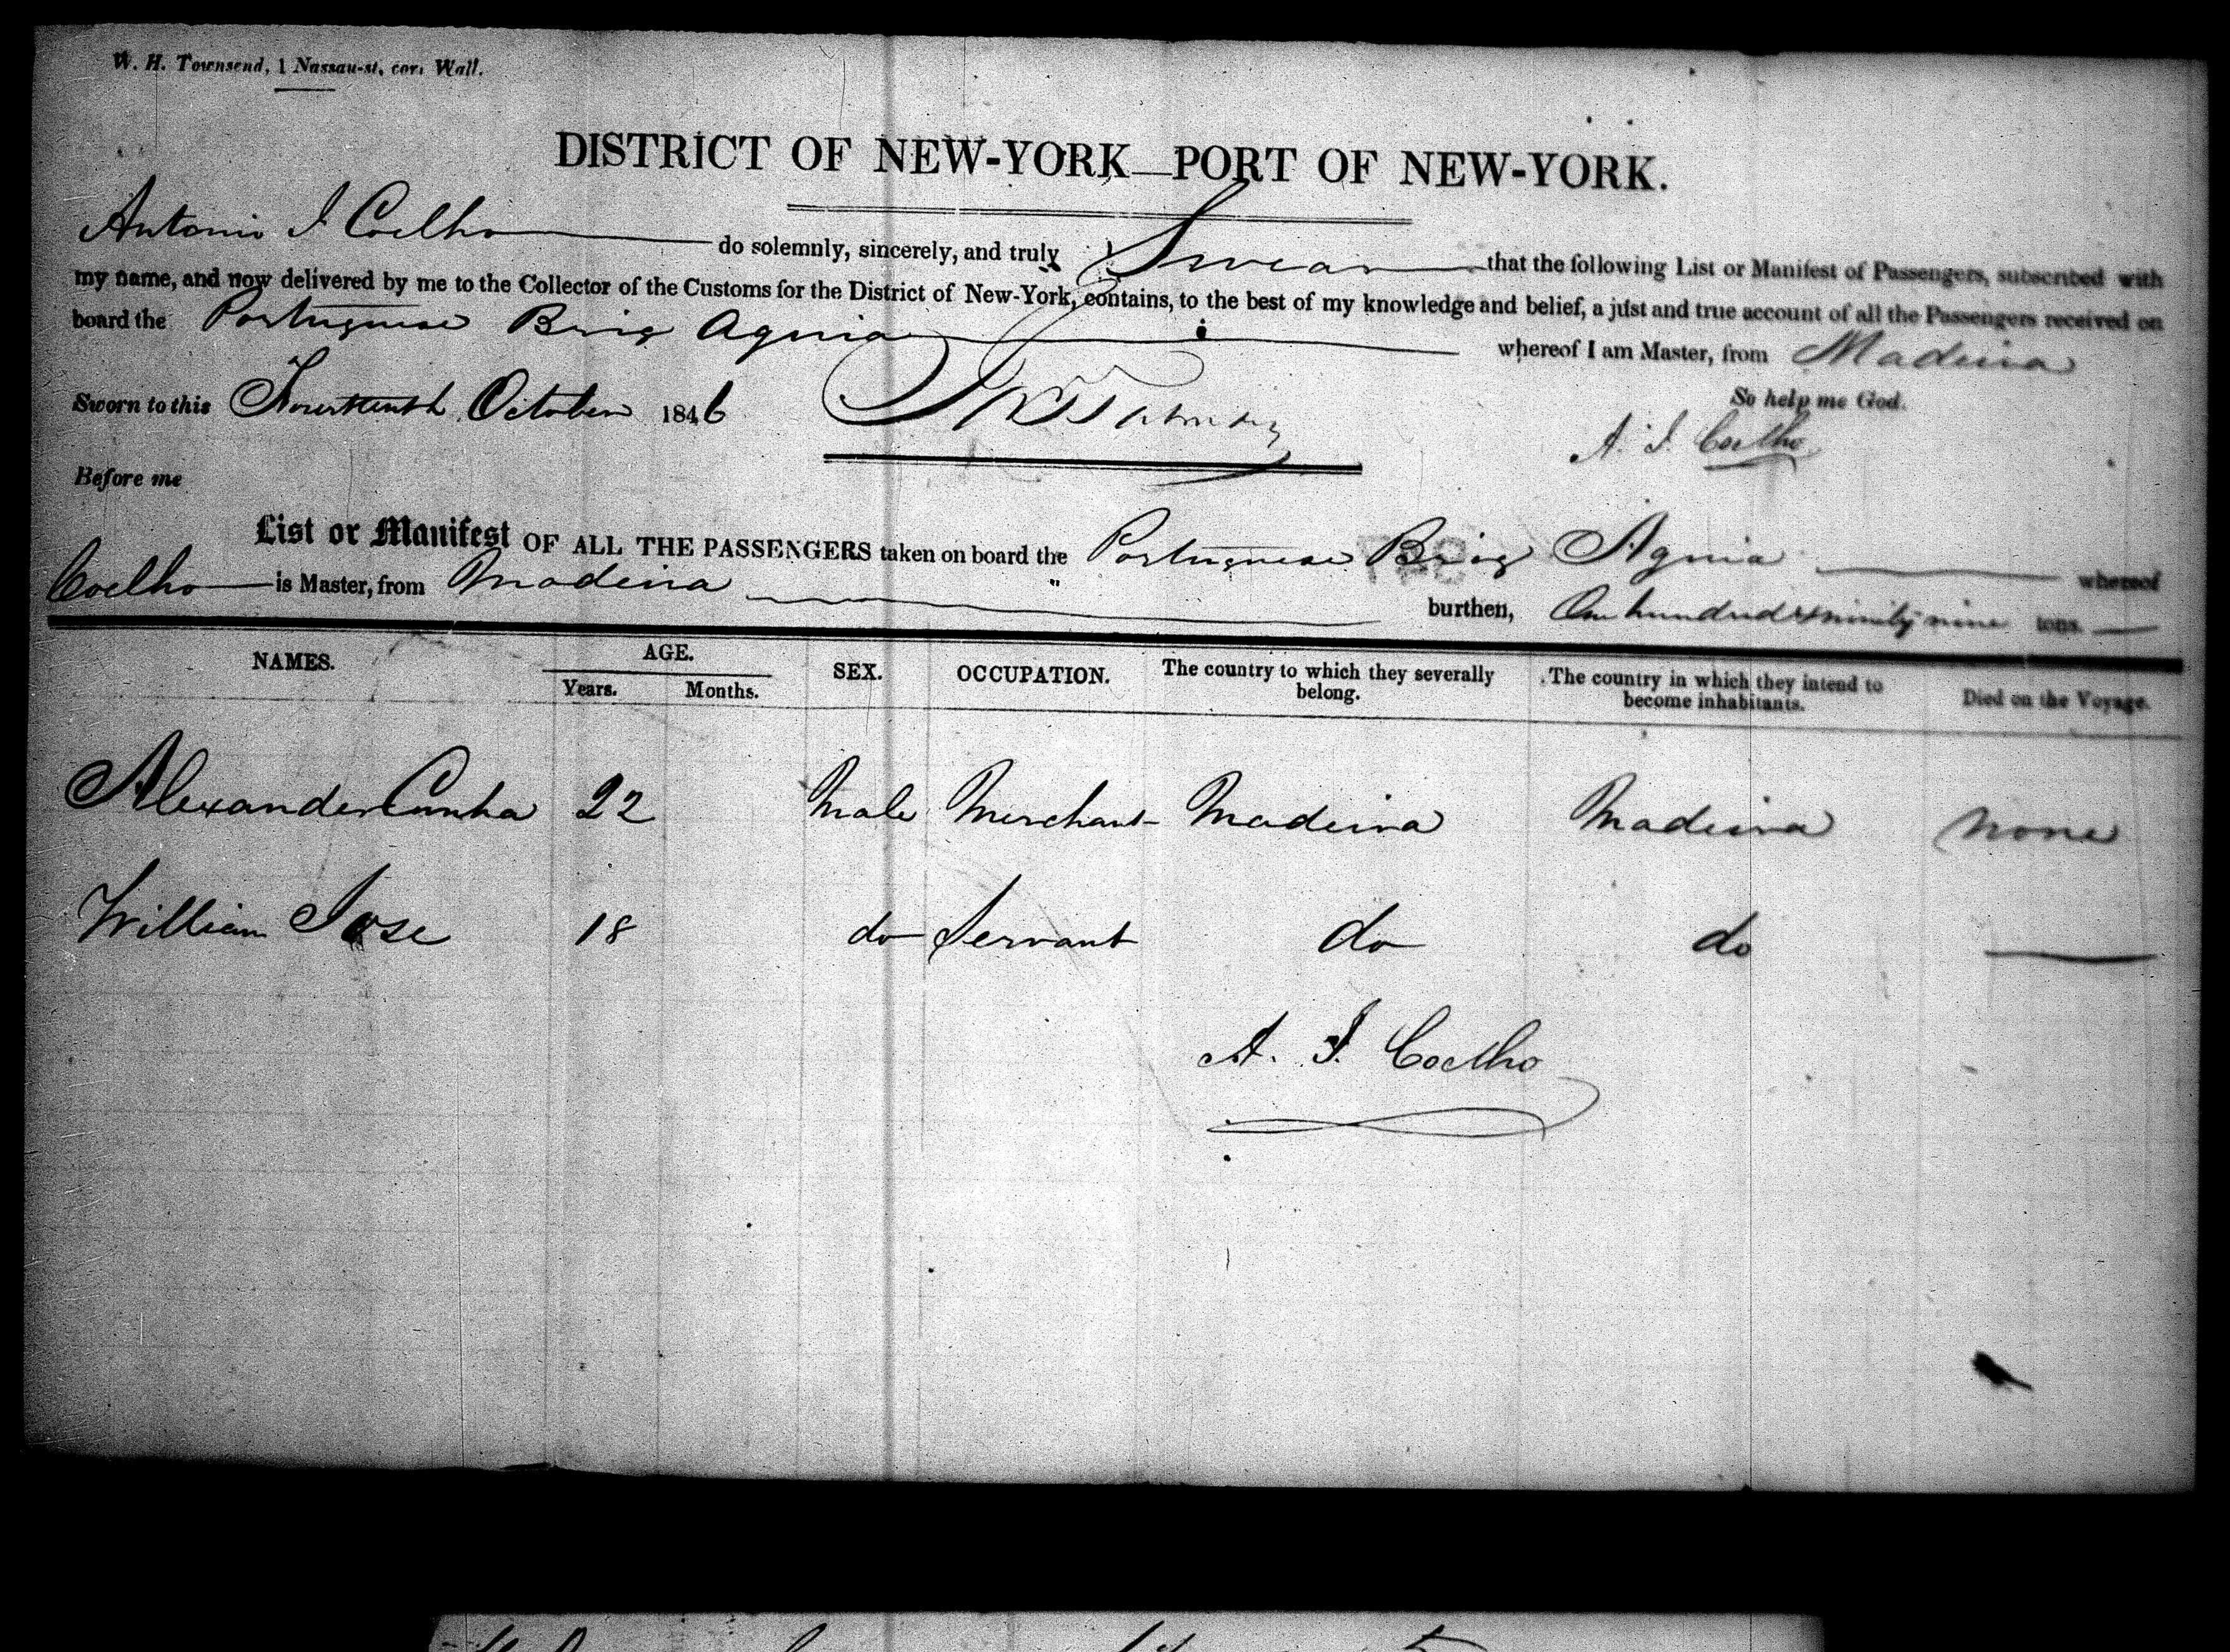 W. H. Townsend, 1 Nassau-st, cor. Wall.
DISTRICT OF NEW-YORK—PORT OF NEW-YORK.
Antonio J Coelho do solemnly, sincerely, and truly Swear that the following List or Manifest of Passengers, subscribed with
my name, and now delivered by me to the Collector of the Customs for the District of New-York, contains, to the best of my knowledge and belief, a just and true account of all the Passengers received on
board the Portuguese Brig Aguia whereof I am Master, from Madeira
So help me God.
Sworn to this Fourteenth October 1846
A. J. Coelho
Before me
List or Manifest OF ALL THE PASSENGERS taken on board the Portuguese Brig Aguia whereof
Coelho is Master, from Madeira burthen, One hundred & ninety nine tons.
NAMES. AGE. SEX. OCCUPATION. The country to which they severally belong. The country in which they intend to become inhabitants. Died on the Voyage.
Years. Months.
Alexander Cunha 22 Male Merchant Madeira Madeira none
William Jose 18 do Servant do do —
A. J. Coelho